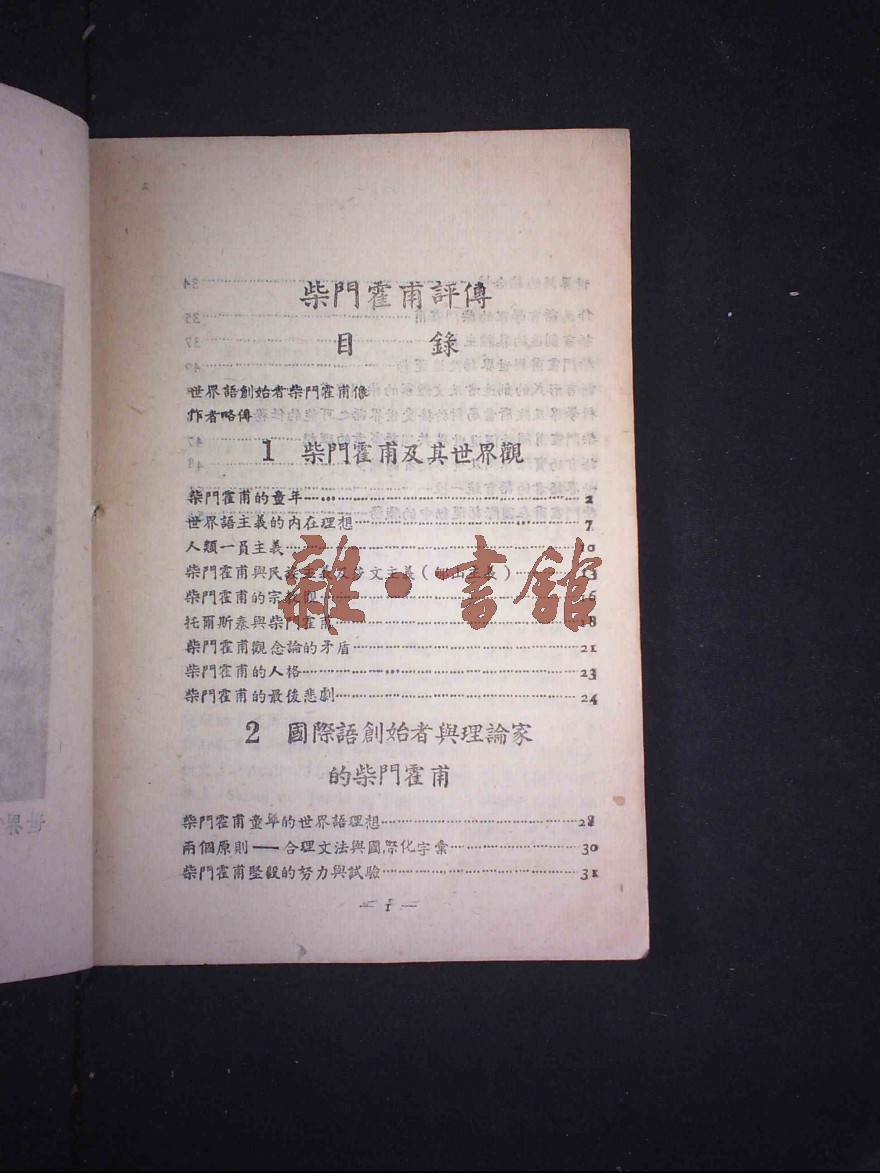 柴門霍甫評傳
目 錄
世界語創始者柴門霍甫像
作者略傳
1 柴門霍甫及其世界觀
柴門霍甫的童年……2
世界語主義的內在理想……7
人類一員主義……10
柴門霍甫與民族主義及莎文主義（ 主義）……13
柴門霍甫的宗教觀……16
托爾斯泰與柴門霍甫……18
柴門霍甫觀念論的矛盾……21
柴門霍甫的人格……23
柴門霍甫的最後悲劇……24
2 國際語創始者與理論家
的柴門霍甫
柴門霍甫童年的世界語理想……28
兩個原則——合理文法與國際化字彙……30
柴門霍甫堅毅的努力與試驗……31
— 1 —
雜·書館